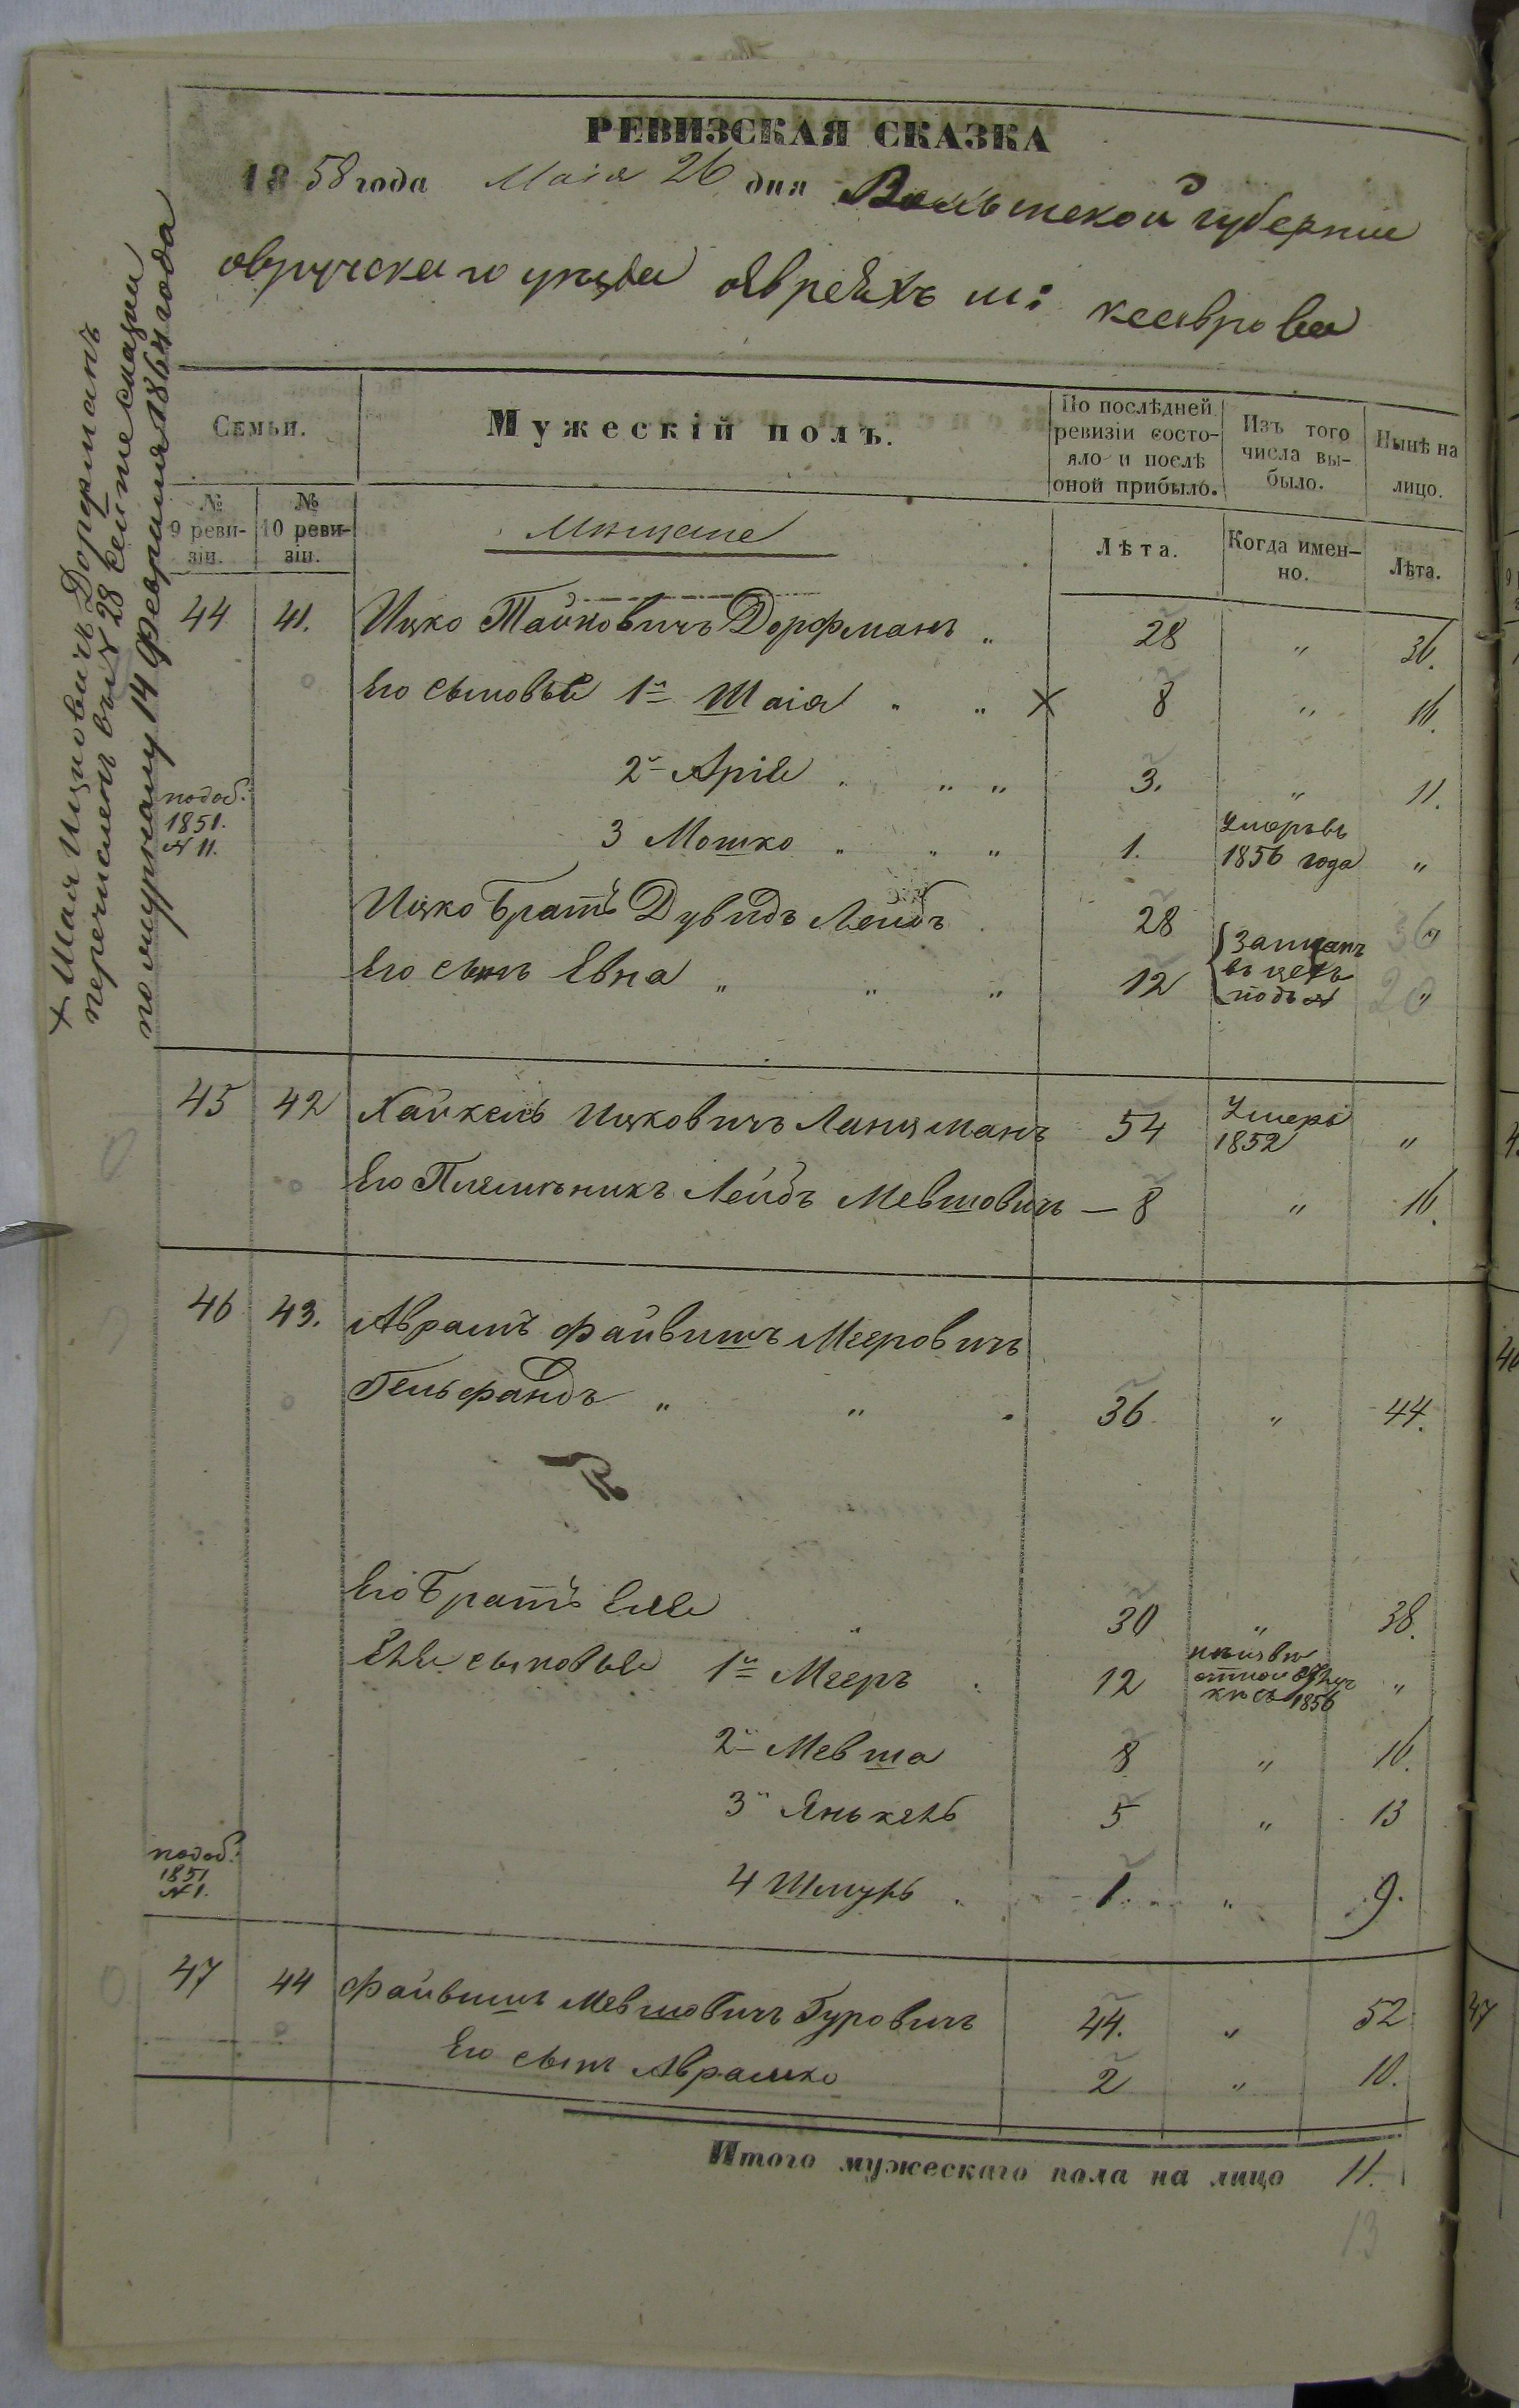 РЕВИЗСКАЯ СКАЗКА
1858 года Маія 26 дня Волынской губерніи
овручскаго уезда оЕвреяхъ м:
Семьи.
Мужескій полъ.
По послѣдней ревизіи состояло и послѣ оной прибыло.
Изъ того числа выбыло.
Нынѣ на лицо.
№ 9 ревизіи.
№ 10 ревизіи.
Мѣщане
Лѣта.
Когда именно.
Лѣта.
44 41. Ицко Дорфманъ „ 28 „ 36.
Его сыновья 1й Шаія „ „ X 8 „ 16.
2й Аріе „ „ „ 3. „ 11.
1851. № 11. 3 Мошко „ „ „ 1. Умеръ въ 1856 года „
Ицко братъ Дувидъ Лейбъ 28 Записанъ 36 „
Его сынъ Евна „ „ „ 12 въ цехъ подъ № 20 „
45 42 Хайкель Ицковичъ Ланцманъ 54 Умеръ 1852 „
Его Племѣникъ Лейбъ Мевшовичъ — 8 „ 16.
46 43. Аврамъ Файвишъ Мееровичъ
Гельфандъ „ „ 36 „ 44.
Его братъ Еле „ 30 „ 38.
Еле сыновья 1й Мееръ 12 1856 „
2й Мевша 8 „ 16.
3й Янькель 5 „ 13
1851 № 1. 4 Шмуль 1. „ 9.
47 44 Файвишъ Мевшовичъ Гуровичъ 44. „ 52
Его сынъ Аврамко 2 „ 10.
Итого мужескаго пола на лицо 11.
13
+ Шая Ицковичъ Дорфманъ
перечисленъ въ № 28 сей же сказки
по 14 Февраля 1864 года